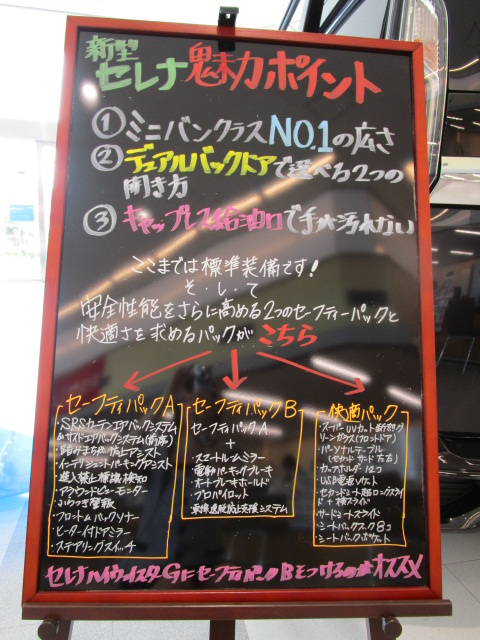 新型
セレナ魅力ポイント
①ミニバンクラスNO.1の広さ
②デュアルバックドアで選べる2つの
開き方
③キャップレス給油口で手が汚れない
ここまでは標準装備です!
そ・し・て
安全性能をさらに高める2つのセーフティーパックと
快適さを求めるパックがこちら
セーフティパックA
・SRSカーテンエアバックシステム
&サイドエアバックシステム(前席)
・踏みまちがい防止アシスト
・インテリジェントパーキングアシスト
・進入禁止標識検知
・アラウンドビューモニター
・ふらつき警報
・フロント&バックソナー
・ヒーター付ドアミラー
・ステアリングスイッチ
セーフティパックB
・セーフティパックA
+
・スマートルームミラー
・電動パーキングブレーキ
・オートブレーキホールド
・プロパイロット
・車線逸脱防止支援システム
快適パック
・スーパーUVカット断熱グ
リーンガラス(フロントドア)
・パーソナルテーブル
(セカンド サード左右)
・カップホルダー12コ
・USB電源ソケット
・セカンドシート超ロングスライ
ド+横スライド
・サードシートスライド
・シートバックフック8コ
・シートバックポケット
セレナハイウェイスターGにセーフティパックBをつけるのがオススメ